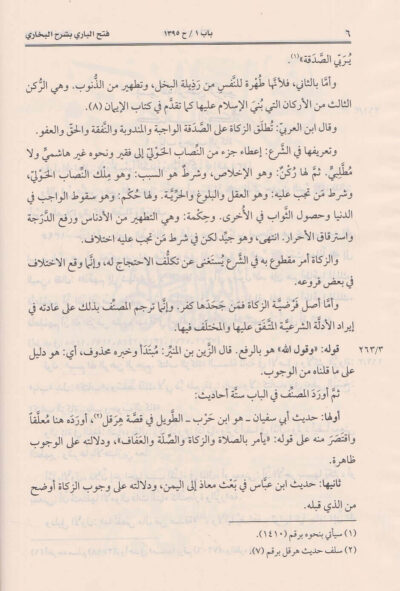 ٦ باب ١ / ح ١٣٩٥ فتح الباري بشرح البخاري
يُرَبّي الصَّدَقة»(١).
وأمّا بالثاني، فلأنَّها طُهْرة للنَّفسِ من رَذِيلة البخل، وتطهير من الذُّنوب. وهي الرُّكن
الثالث من الأركان التي بُنيَ الإسلام عليها كما تقدَّم في كتاب الإيمان (٨).
وقال ابن العربيّ: تُطلَق الزكاة على الصَّدقة الواجبة والمندوبة والنَّفقة والحقّ والعفو.
وتعريفها في الشَّرع: إعطاء جزء من النِّصاب الحَوْليّ إلى فقير ونحوه غير هاشميٍّ ولا
مُطَّلِبيّ. ثمَّ لها رُكْنٌ: وهو الإخلاص، وشرطٌ هو السبب: وهو مِلْك النِّصاب الحَوْليّ،
وشرط مَن تجب عليه: وهو العقل والبلوغ والحُرّيَّة. ولها حُكْم: وهو سقوط الواجب في
الدنيا وحصول الثَّواب في الأُخرى. وحِكْمة: وهي التطهير من الأدناس ورفع الدَّرَجة
واسترقاق الأحرار. انتهى، وهو جيِّد لكن في شرط مَن تجب عليه اختلاف.
والزكاة أمر مقطوع به في الشَّرع يُستَغنى عن تكلُّف الاحتجاج له، وإنَّما وقع الاختلاف
في بعض فروعه.
وأمّا أصل فَرْضيَّة الزكاة فمَن جَحَدَها كفر. وإنَّما ترجم المصنِّف بذلك على عادته في
إيراد الأدلَّة الشرعيَّة المتَّفَق عليها والمختلَف فيها.
٢٦٣/٣ قوله: «وقول الله» هو بالرفع. قال الزَّين بن المنيِّر: مُبتَدَأ وخبره محذوف، أي: هو دليل
على ما قلناه من الوجوب.
ثمَّ أورَدَ المصنِّف في الباب ستَّة أحاديث:
أولها: حديث أبي سفيان ـ هو ابن حَرْب ـ الطَّويل في قصَّة هِرَقل(٢)، أورَدَه هنا مُعلَّقاً
واقتَصَرَ منه على قوله: «يأمر بالصلاة والزكاة والصِّلة والعَفَاف»، ودلالته على الوجوب
ظاهرة.
ثانيها: حديث ابن عبَّاس في بَعْث معاذ إلى اليمن، ودلالته على وجوب الزكاة أوضح
من الذي قبله.
(١) سيأتي بنحوه برقم (١٤١٠).
(٢) سلف حديث هرقل برقم (٧).